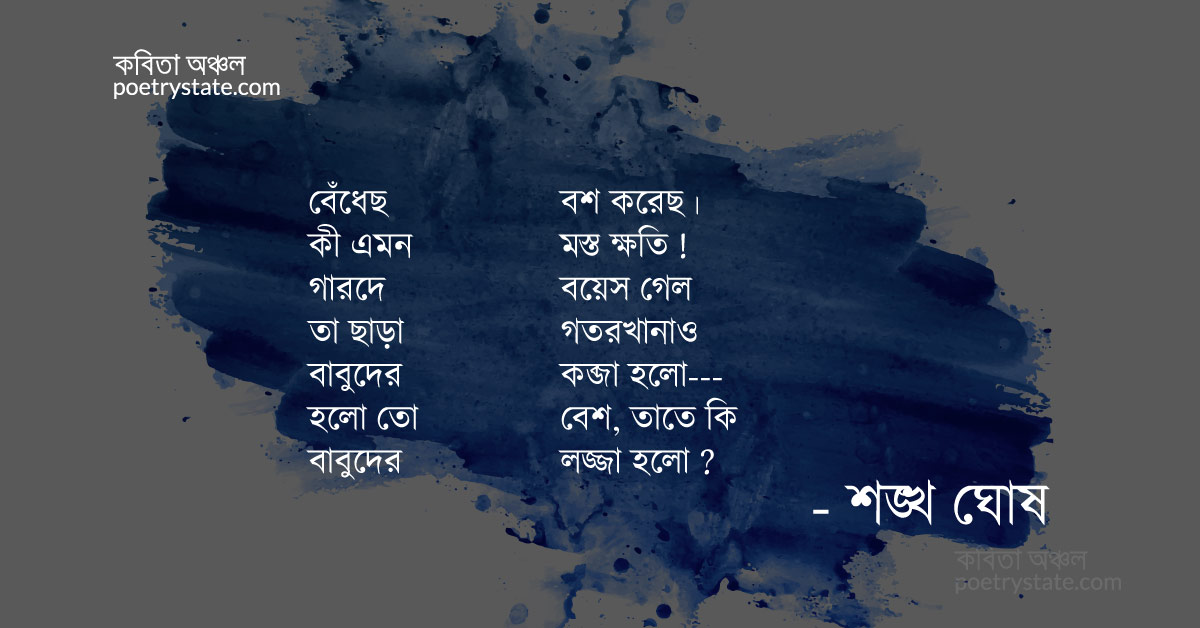 কবিতা অঞ্চল
poetrystate.com
বেঁধেছ বশ করেছ।
কী এমন মস্ত ক্ষতি !
গারদে বয়েস গেল
তা ছাড়া গতরখানাও
বাবুদের কব্জা হলো---
হলো তো বেশ, তাতে কি
বাবুদের লজ্জা হলো ?
- শঙ্খ ঘোষ
কবিতা অঞ্চল
poetrystate.com